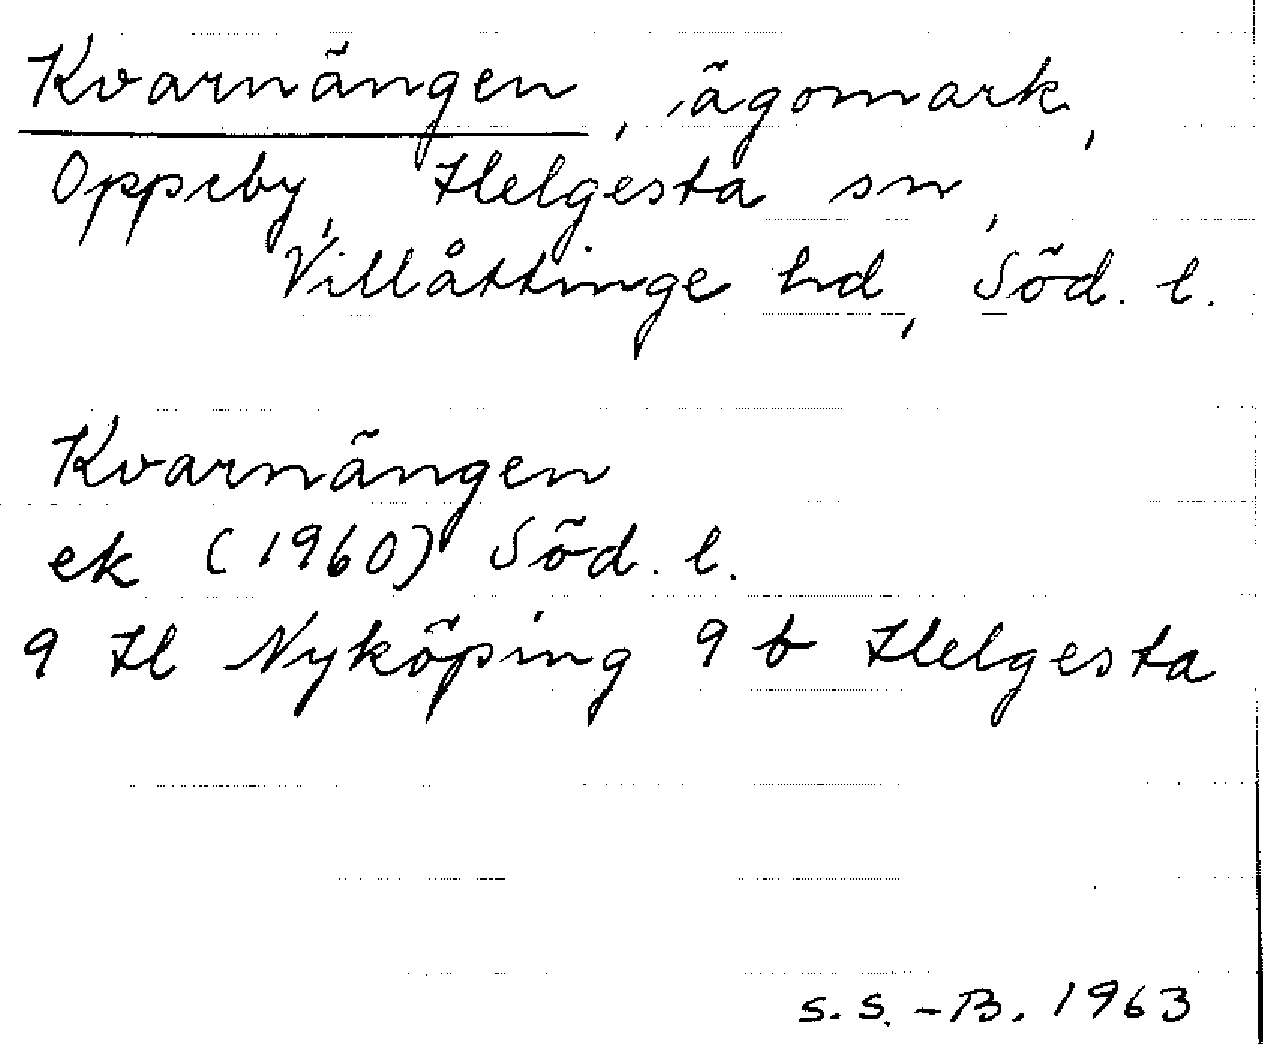 Kvarnängen, ägomark,
Oppeby, Helgesta sn,
Villåttinge hd, Söd. l.
Kvarnängen
ek (1960) Söd. l.
9 H Nyköping 9 b Helgesta
S.S.-B. 1963